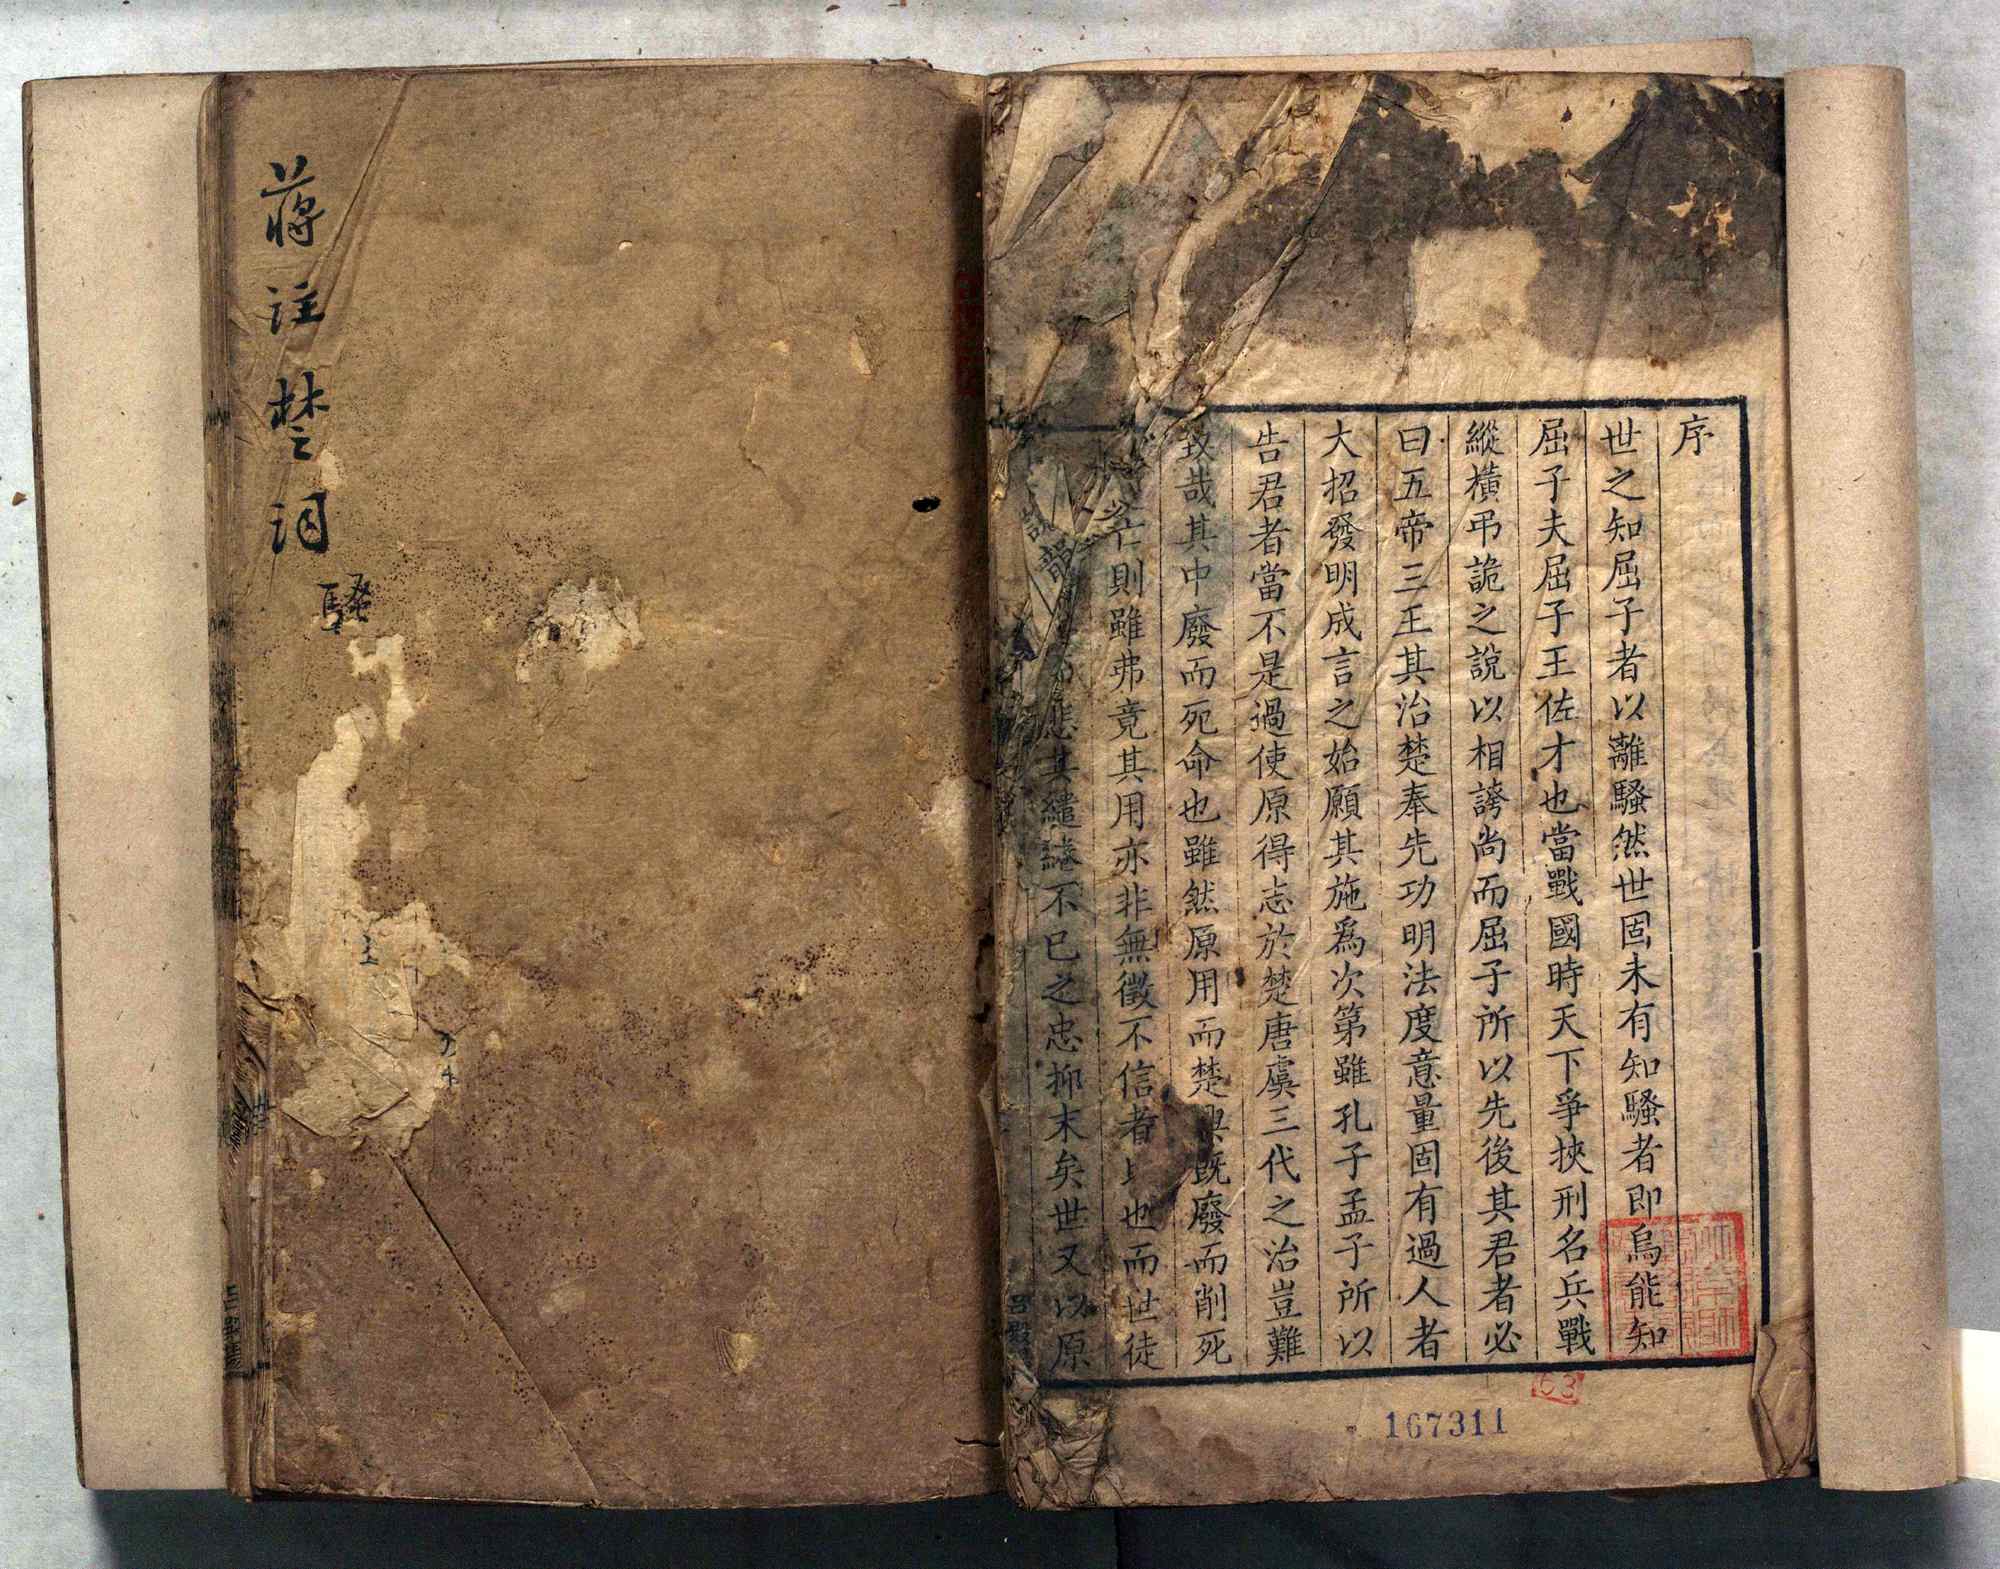 序
世之知屈子者以離騷然世固未有知騷者即烏能知
屈子夫屈子王佐才也當戰國時天下爭挾刑名兵戰
縱橫弔詭之說以相誇尚而屈子所以先後其君者必
曰五帝三王其治楚奉先功明法度意量固有過人者
大招發明成言之始願其施爲次第雖孔子孟子所以
告君者當不是過使原得志於楚唐虞三代之治豈難
致哉其中廢而死命也雖然原用而楚興既廢而削死
亡則雖弗竟其用亦非無徵不信者比也而世徒
悲其繾綣不已之忠抑末矣世又以原
167311
63
蔣註楚詞
騷